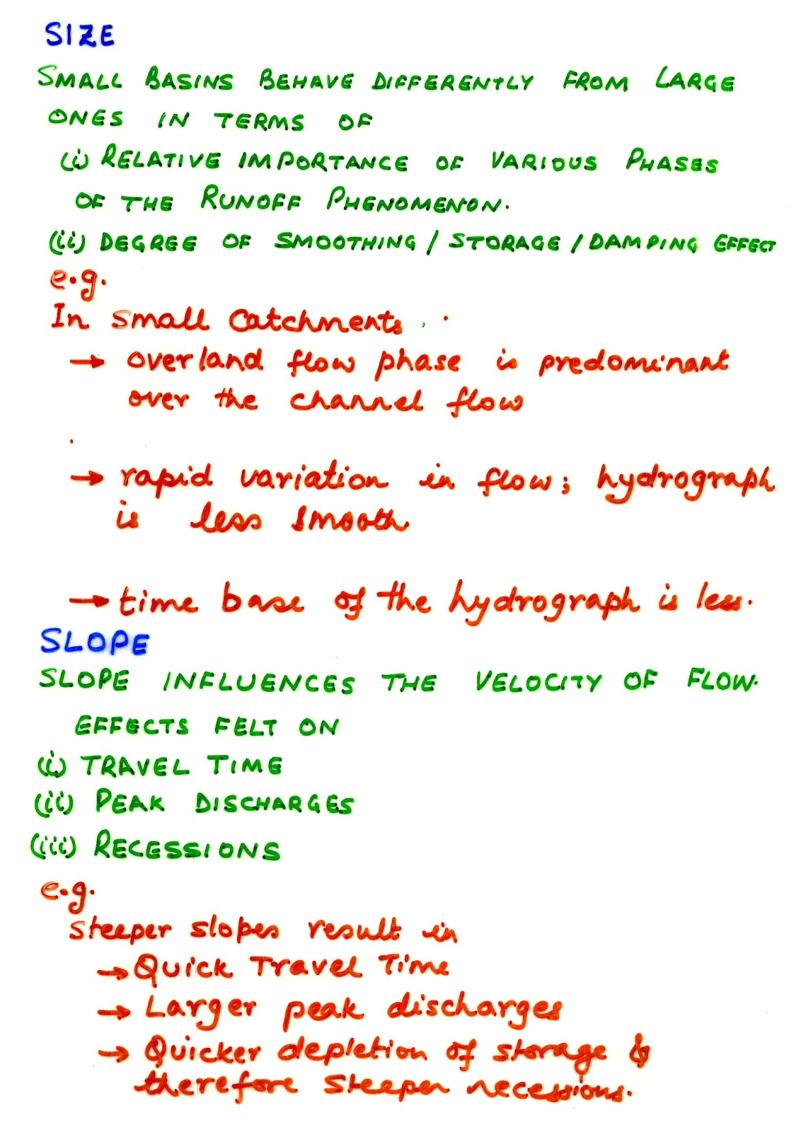 SIZE
SMALL BASINS BEHAVE DIFFERENTLY FROM LARGE
ONES IN TERMS OF
(i) RELATIVE IMPORTANCE OF VARIOUS PHASES
OF THE RUNOFF PHENOMENON.
(ii) DEGREE OF SMOOTHING / STORAGE / DAMPING EFFECT
e.g.
In small catchments.
→ overland flow phase is predominant
over the channel flow
→ rapid variation in flow; hydrograph
is less smooth
→ time base of the hydrograph is less.
SLOPE
SLOPE INFLUENCES THE VELOCITY OF FLOW.
EFFECTS FELT ON
(i) TRAVEL TIME
(ii) PEAK DISCHARGES
(iii) RECESSIONS
e.g.
Steeper slopes result in
→ Quick Travel Time
→ Larger peak discharges
→ Quicker depletion of storage &
therefore steeper necessions.